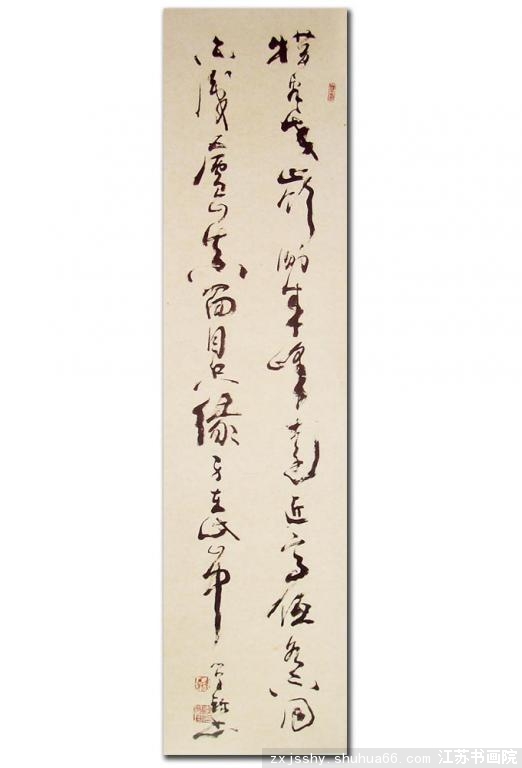 横看成嶺側成峰遠近高低各不同
不識廬山真面目只緣身在此山中
zxjsshy.shuhua66.com/江苏书画院